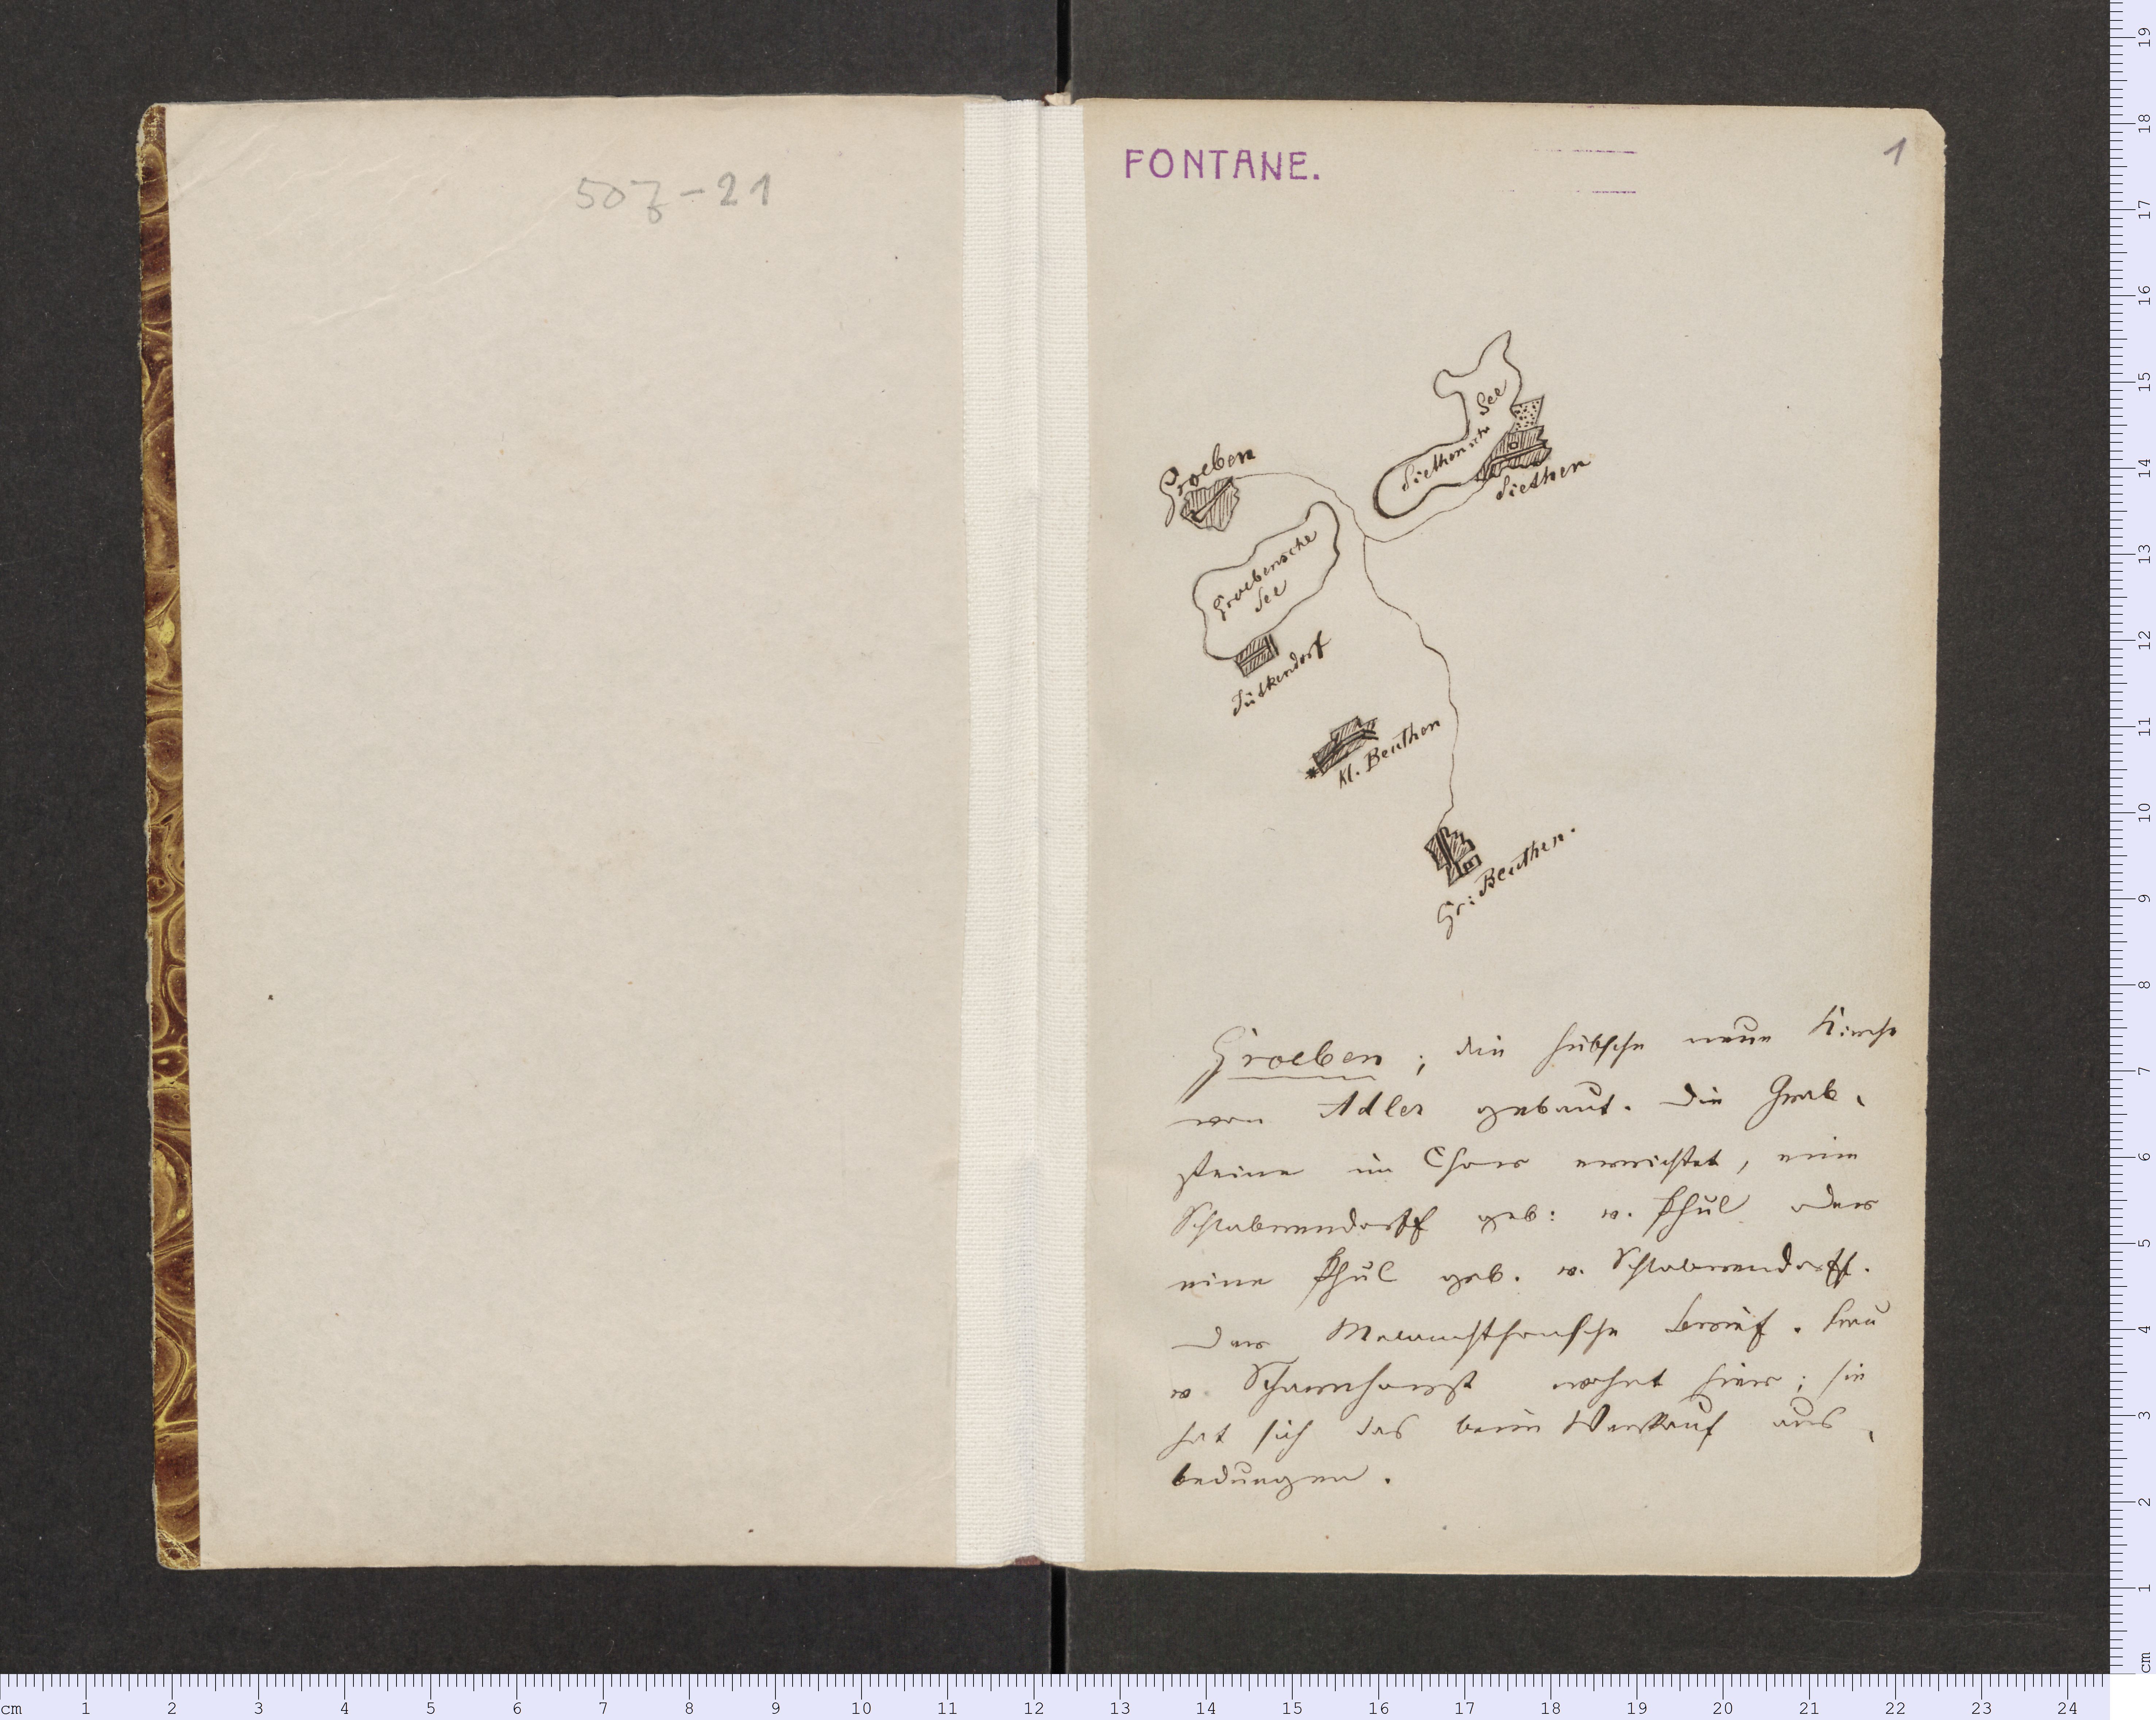 507-21
FONTANE.
1
Siethensche See
Groeben
Siethen
Groebensche
See
Jütkendorf
Kl. Beuthen
Gr: Beuthen.
Groeben; die hübsche neue Kirche
von Adler gebaut. Die Grab-
steine im Chor errichtet, eine
Schlabrendorff geb: v. Pfuhl oder
eine Pfuhl geb. v. Schlabrendorff.
Der Melanchthonsche Brief. Frau
v. Scharnhorst wohnt hier; sie
hat sich das beim Verkauf aus-
bedungen.